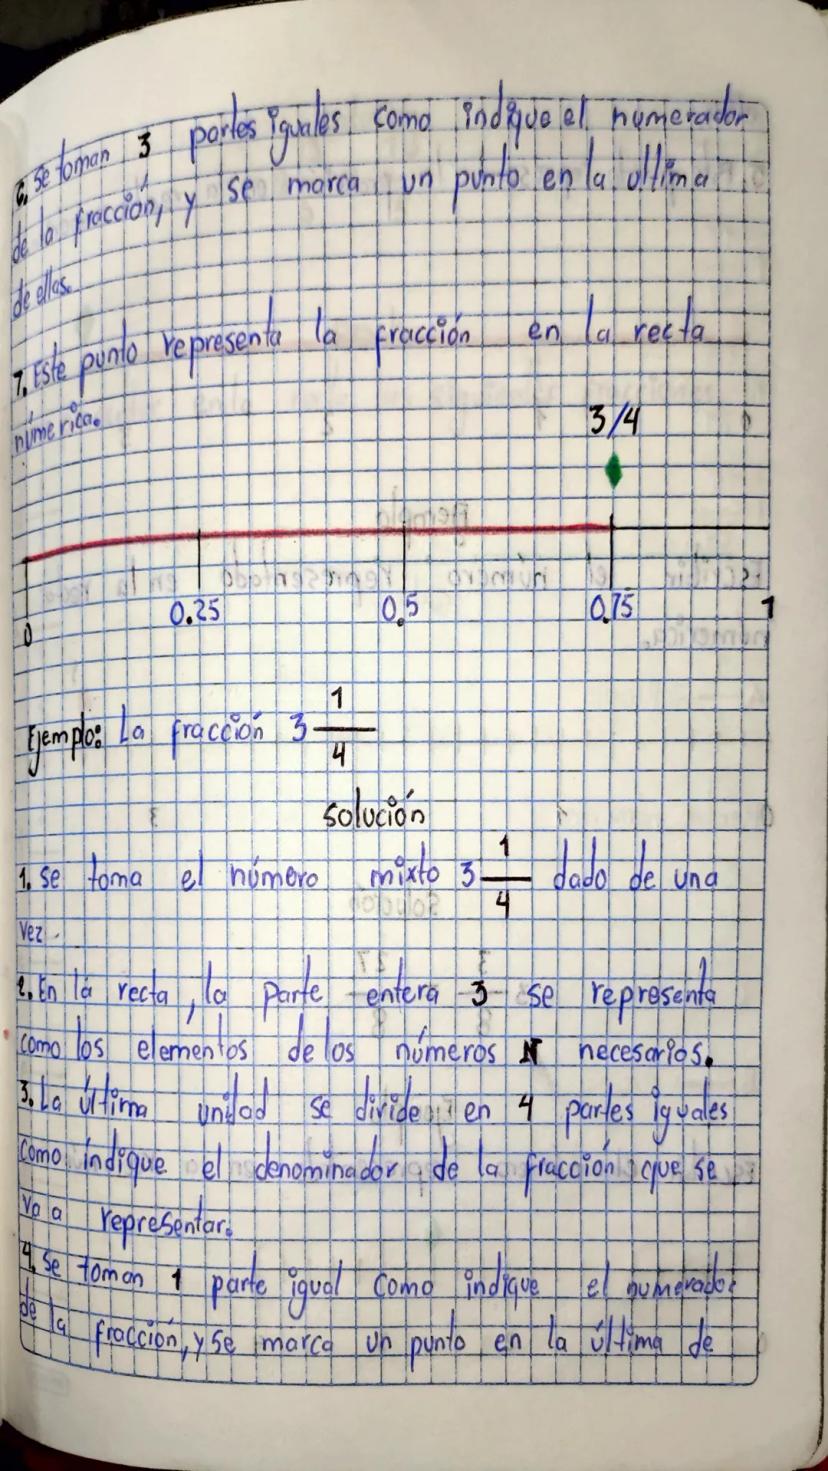 6. Se toman 3 partes iguales como indique el numerador
de la fracción, y se marca un punto en la última
de ellas.
7. Este punto representa la fracción en la recta
númerica.
3/4
0 0.25 0.5 0.75 1
Ejemplo: La fracción 3 1/4
solución
1. se toma el número mixto 3 1/4 dado de una
vez.
2. En la recta, la parte entera 3 se representa
como los elementos de los números N necesarios.
3. La última unidad se divide en 4 partes iguales
como indique el denominador de la fracción que se
va a representar.
4. Se toman 1 parte igual como indique el numerador
de la fracción, y se marca un punto en la última de